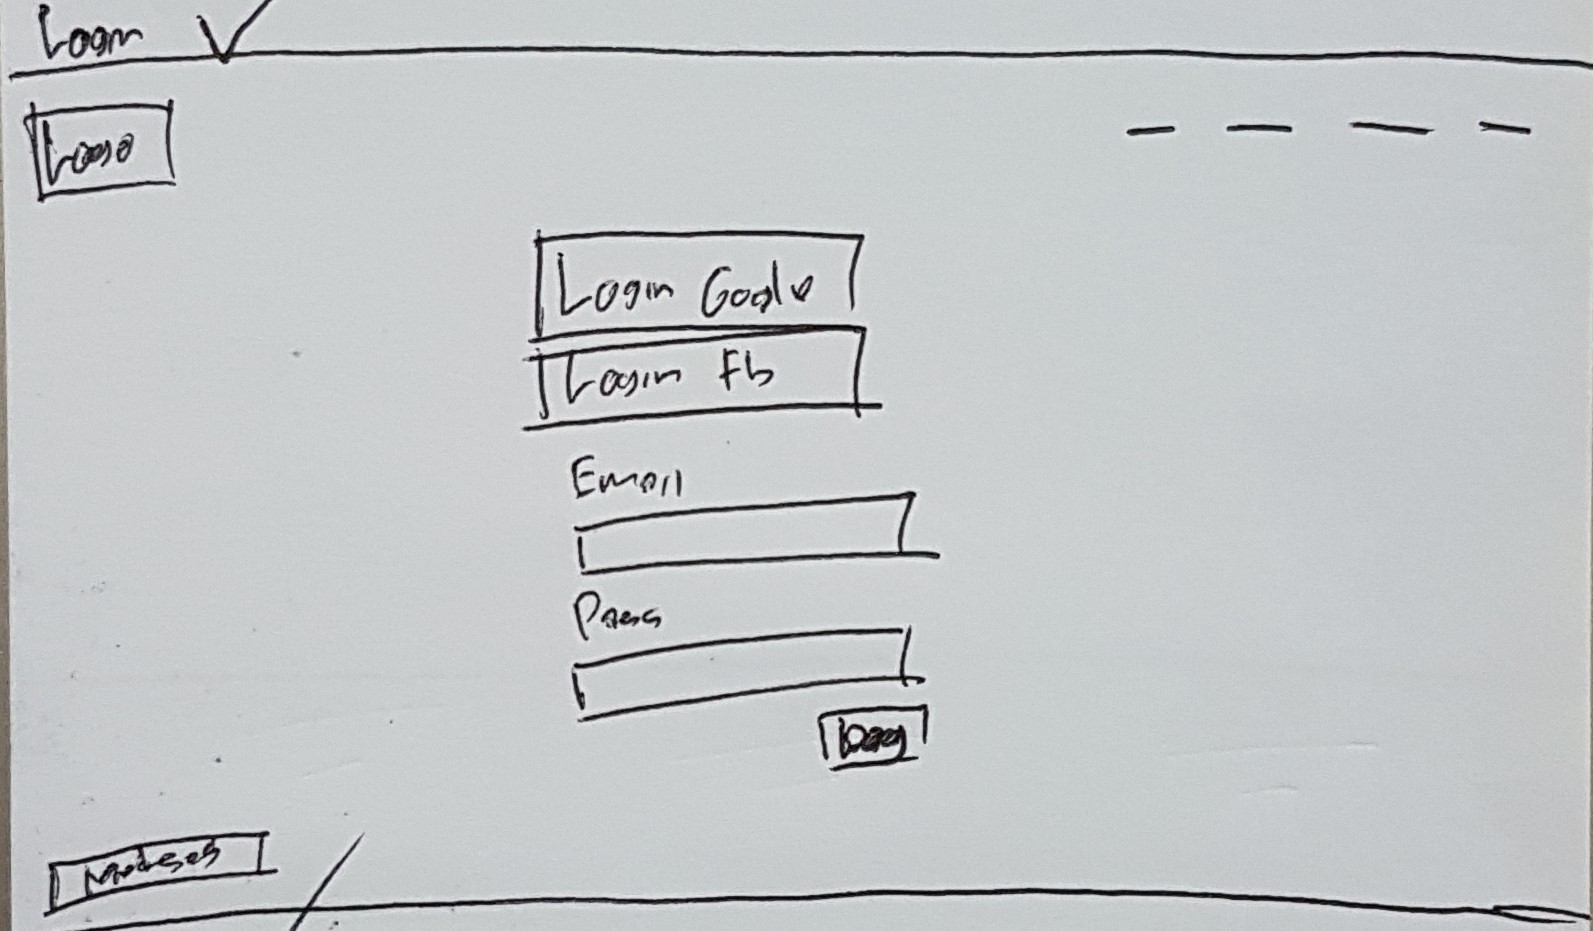 Login
Logo
Login Google
Login Fb
Email
Pass